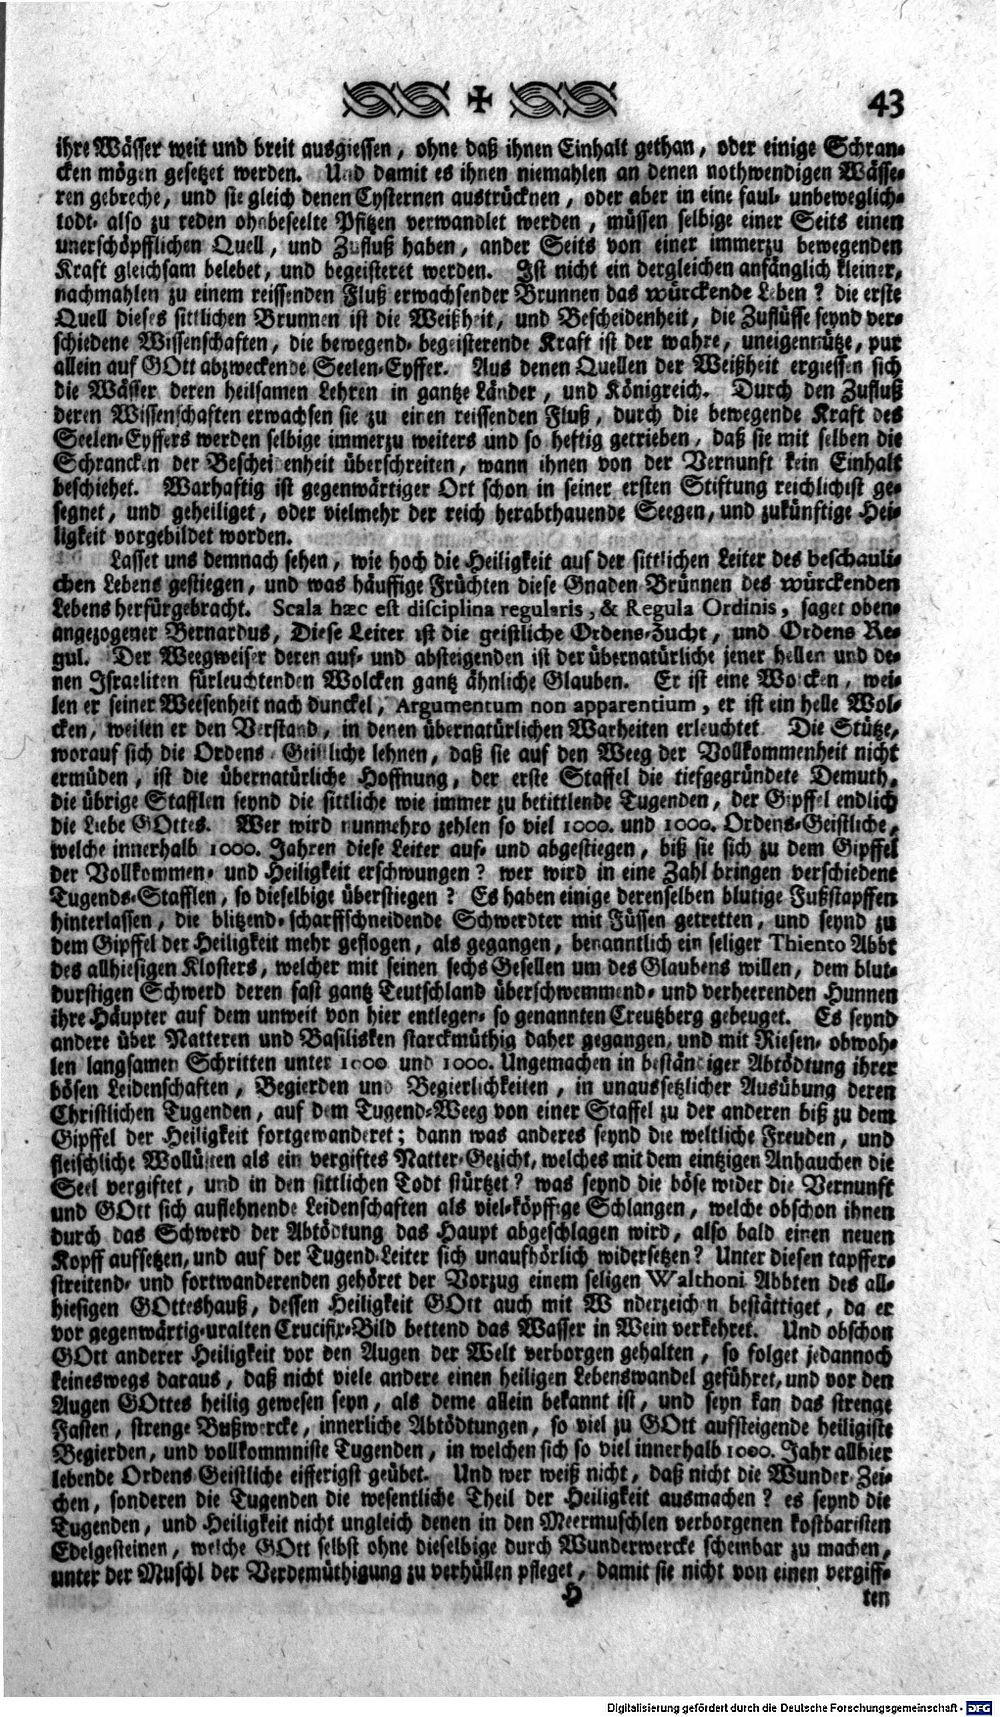 43
ihre Wässer weit und breit ausgiessen, ohne daß ihnen Einhalt gethan, oder einige Schran-
cken mögen gesetzet werden. Und damit es ihnen niemahlen an denen nothwendigen Wässe-
ren gebreche, und sie gleich denen Cysternen austrücknen, oder aber in eine faul- unbeweglich-
todt- also zu reden ohnbeseelte Pfitzen verwandlet werden, müssen selbige einer Seits einen
unerschöpfflichen Quell, und Zufluß haben, ander Seits von einer immerzu bewegenden
Kraft gleichsam belebet, und begeisteret werden. Ist nicht ein dergleichen anfänglich kleiner,
nachmahlen zu einem reissenden Fluß erwachsender Brunnen das würckende Leben? die erste
Quell dieses sittlichen Brunnen ist die Weißheit, und Bescheidenheit, die Zuflüsse seynd ver-
schiedene Wissenschaften, die bewegend- begeisterende Kraft ist der wahre, uneigennütze, pur
allein auf GOtt abzweckende Seelen-Eyffer. Aus denen Quellen der Weißheit ergiessen sich
die Wässer deren heilsamen Lehren in gantze Länder, und Königreich. Durch den Zufluß
deren Wissenschaften erwachsen sie zu einen reissenden Fluß, durch die bewegende Kraft des
Seelen-Eyffers werden selbige immerzu weiters und so heftig getrieben, daß sie mit selben die
Schrancken der Bescheidenheit überschreiten, wann ihnen von der Vernunft kein Einhalt
beschiehet. Warhaftig ist gegenwärtiger Ort schon in seiner ersten Stiftung reichlichist ge-
segnet, und geheiliget, oder vielmehr der reich herabthauende Seegen, und zukünftige Hei-
ligkeit vorgebildet worden.
Lasset uns demnach sehen, wie hoch die Heiligkeit auf der sittlichen Leiter des beschauli-
chen Lebens gestiegen, und was häuffige Früchten diese Gnaden-Brünnen des würckenden
Lebens herfürgebracht. Scala hæc est disciplina regularis, & Regula Ordinis, saget oben-
angezogener Bernardus, Diese Leiter ist die geistliche Ordens-Zucht, und Ordens Re-
gul. Der Weegweiser deren auf- und absteigenden ist der übernatürliche jener hellen und de-
nen Israeliten fürleuchtenden Wolcken gantz ähnliche Glauben. Er ist eine Wolcken, wei-
len er seiner Weesenheit nach dunckel, Argumentum non apparentium, er ist ein helle Wol-
cken, weilen er den Verstand, in denen übernatürlichen Warheiten erleuchtet. Die Stütze,
worauf sich die Ordens-Geistliche lehnen, daß sie auf den Weeg der Vollkommenheit nicht
ermüden, ist die übernatürliche Hoffnung, der erste Staffel die tiefgegründete Demuth,
die übrige Stafflen seynd die sittliche wie immer zu betittlende Tugenden, der Gipffel endlich
die Liebe GOttes. Wer wird nunmehro zehlen so viel 1000. und 1000. Ordens-Geistliche,
welche innerhalb 1000. Jahren diese Leiter auf- und abgestiegen, biß sie sich zu dem Gipffel
der Vollkommen- und Heiligkeit erschwungen? wer wird in eine Zahl bringen verschiedene
Tugends-Stafflen, so dieselbige überstiegen? Es haben einige derenselben blutige Fußstapffen
hinterlassen, die blitzend-scharffschneidende Schwerdter mit Füssen getretten, und seynd zu
dem Gipffel der Heiligkeit mehr geflogen, als gegangen, benanntlich ein seliger Thiento Abbt
des allhiesigen Klosters, welcher mit seinen sechs Gesellen um des Glaubens willen, dem blut-
durstigen Schwerd deren fast gantz Teutschland überschwemmend- und verheerenden Hunnen
ihre Häupter auf dem unweit von hier entlegen- so genannten Creutzberg gebeuget. Es seynd
andere über Natteren und Basilisken starckmüthig daher gegangen, und mit Riesen- obwoh-
len langsamen Schritten unter 1000 und 1000. Ungemachen in beständiger Abtödtung ihrer
bösen Leidenschaften, Begierden und Begierlichkeiten, in unaussetzlicher Ausübung deren
Christlichen Tugenden, auf dem Tugend-Weeg von einer Staffel zu der anderen biß zu dem
Gipffel der Heiligkeit fortgewanderet; dann was anderes seynd die weltliche Freuden, und
fleischliche Wollüsten als ein vergiftes Natter-Gezicht, welches mit dem eintzigen Anhauchen die
Seel vergiftet, und in den sittlichen Todt stürtzet? was seynd die böse wider die Vernunft
und GOtt sich auflehnende Leidenschaften als viel-köpffige Schlangen, welche obschon ihnen
durch das Schwerd der Abtödtung das Haupt abgeschlagen wird, also bald einen neuen
Kopff aufsetzen, und auf der Tugend-Leiter sich unaufhörlich widersetzen? Unter diesen tapffer-
streitend- und fortwanderenden gehöret der Vorzug einem seligen Walthoni Abbten des all-
hiesigen GOtteshauß, dessen Heiligkeit GOtt auch mit Wunderzeichen bestättiget, da er
vor gegenwärtig-uralten Crucifix-Bild bettend das Wasser in Wein verkehret. Und obschon
GOtt anderer Heiligkeit vor den Augen der Welt verborgen gehalten, so folget jedannoch
keineswegs daraus, daß nicht viele andere einen heiligen Lebenswandel geführet, und vor den
Augen GOttes heilig gewesen seyn, als deme allein bekannt ist, und seyn kan das strenge
Fasten, strenge Bußwercke, innerliche Abtödtungen, so viel zu GOtt aufsteigende heiligiste
Begierden, und vollkommniste Tugenden, in welchen sich so viel innerhalb 1000. Jahr allhier
lebende Ordens Geistliche eifferigst geübet. Und wer weiß nicht, daß nicht die Wunder-Zei-
chen, sonderen die Tugenden die wesentliche Theil der Heiligkeit ausmachen? es seynd die
Tugenden, und Heiligkeit nicht ungleich denen in den Meermuschlen verborgenen kostbaristen
Edelgesteinen, welche GOtt selbst ohne dieselbige durch Wunderwercke scheinbar zu machen,
unter der Muschl der Verdemüthigung zu verhüllen pfleget, damit sie nicht von einen vergiff-
H
ten
Digitalisierung gefördert durch die Deutsche Forschungsgemeinschaft - DFG